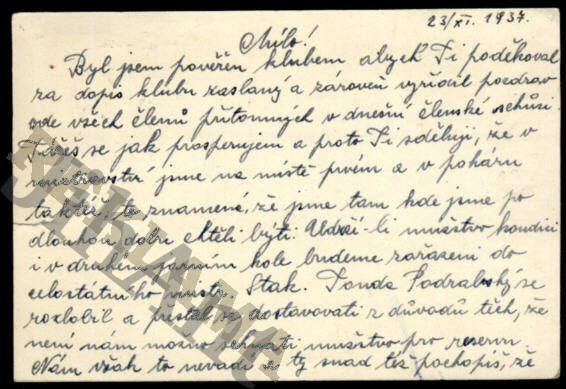 23/XI. 1937.
Mílo!
Byl jsem pověřen klubem abych Ti poděkoval
za dopis klubu zaslaný a zároveň vyřídil pozdrav
ode všech členů přítomných v dnešní členské schůzi
Tážeš se jak prosperujem a proto Ti sděluji, že v
mistrovství jsme na místě prvém a v poháru
taktéž, to znamená, že jsme tam kde jsme po
dlouhou dobu chtěli býti. Udrží-li mužstvo kondici
i v druhém jarním kole budeme zařazeni do
celostátního mistr. Stak. Tonda Podrabský se
rozlobil a přestal se dostavovati z důvodů těch, že
není nám možno sehnati mužstvo pro reservu.
Nám však to nevadí a ty snad též pochopíš, že